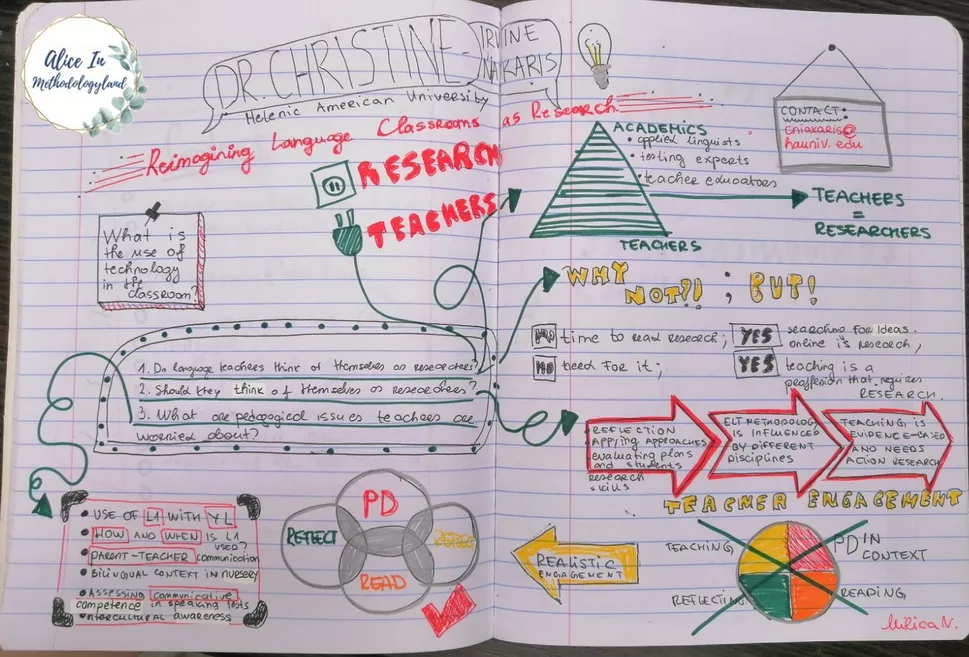 Alice In
Methodologyland
DR. CHRISTINE-
IRVINE
NIAKARIS
Helenic American University
Reimagining Language Classrooms as Research
RESEARCH
TEACHERS
What is
the use of
technology
in the
classroom?
ACADEMICS
• applied linguists
• testing experts
• teacher educators
TEACHERS
TEACHERS
=
RESEARCHERS
CONTACT:
eniakaris@
hauniv.edu
WHY
NOT?!! ; BUT!
NO time to read research;
YES searching for ideas
online is research,
NO need for it;
YES teaching is a
proffesion that requires
RESEARCH.
1. Do language teachers think of themselves as researchers?
2. Should they think of themselves as researchers?
3. What are pedagogical issues teachers are
worried about?
REFLECTION
Applying approaches
evaluating plans
and students
research
skills
ELT METHODOLOGY
IS INFLUENCED
BY DIFFERENT
DISCIPLINES
TEACHING IS
EVIDENCE-BASED
AND NEEDS
ACTION RESEARCH
TEACHER ENGAGEMENT
• USE OF L1 WITH YL
• HOW AND WHEN IS L1
USED?
• PARENT-TEACHER communication
• BILINGUAL CONTEXT IN NURSERY
• ASSESSING communicative
competence in speaking tests
• INTERCULTURAL AWARENESS
PD
REFLECT
READ
REALISTIC
ENGAGEMENT
TEACHING
PD IN
CONTEXT
REFLECTING
READING
Milica N.